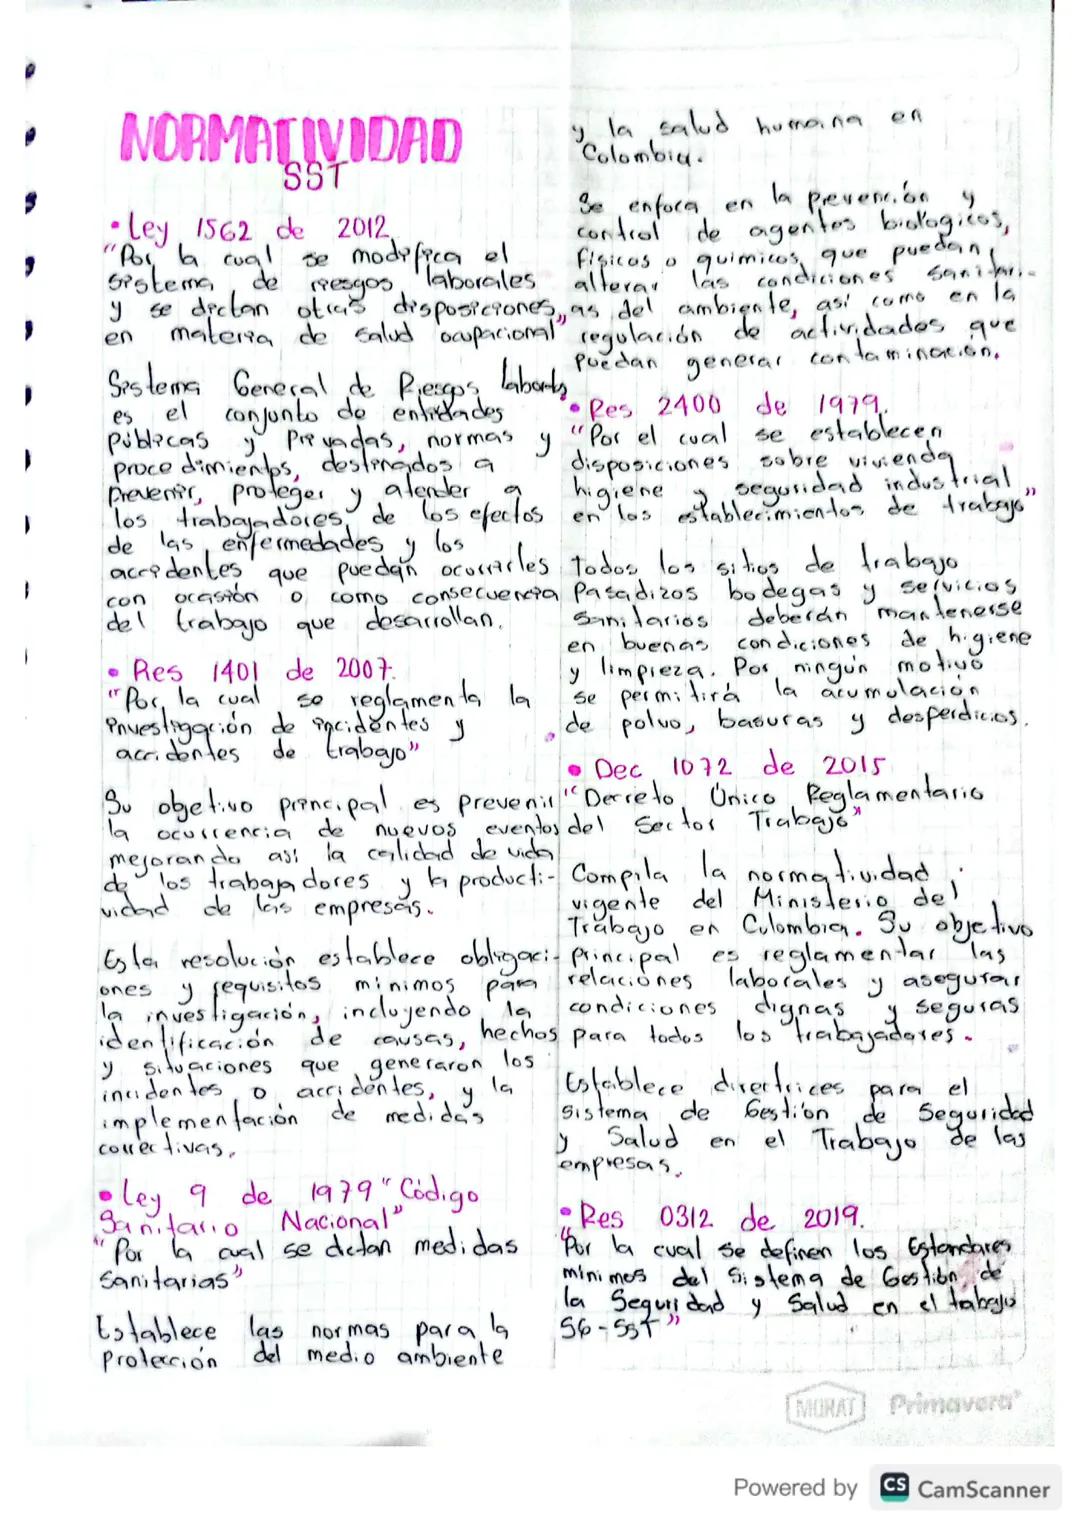 NORMATIVIDAD
SST
• Ley 1562 de 2012.
"Por la cual se modifica el
sistema de riesgos laborales
y se dictan otras disposiciones
en materia de salud ocupacional"
Sistema General de Riesgos laborales
es el conjunto de entidades
públicas y privadas, normas y
procedimientos, destinados a
prevenir, proteger y atender a
los trabajadores de los efectos
de las enfermedades y los
accidentes que puedan ocurrirles
con ocasión o como consecuencia
del trabajo que desarrollan.
• Res 1401 de 2007.
"Por la cual se reglamenta la
investigación de incidentes y
accidentes de trabajo"
Su objetivo principal es prevenir
la ocurrencia de nuevos eventos
mejorando asi la calidad de vida
de los trabajadores y la producti-
vidad de las empresas.
Esta resolución establece obligaci-
ones y requisitos minimos para
la investigación, incluyendo la
identificación de causas, hechos
y situaciones que generaron los
incidentes o accidentes, y la
implementación de medidas
correctivas.
• Ley 9 de 1979 "Código
Sanitario Nacional"
"Por la cual se dictan medidas
sanitarias"
Establece las normas para la
protección del medio ambiente
y la salud humana en
Colombia.
Se enfoca en la prevención y
control de agentes biologicos,
físicos o quimicos que puedan
alterar las condiciones sanitari-
as del ambiente, así como en la
regulación de actividades que
puedan generar contaminación.
• Res 2400 de 1979.
"Por el cual se establecen
disposiciones sobre vivienda
higiene y seguridad industrial
en los establecimientos de trabajo"
Todos los sitios de trabajo
Pasadizos bodegas y servicios
sanitarios deberán mantenerse
en buenas condiciones de higiene
y limpieza. Por ningún motivo
se permitirá la acumulación
de polvo, basuras y desperdicios.
• Dec 1072 de 2015
"Decreto Único Reglamentario
del Sector Trabajo"
Compila la normatividad
vigente del Ministerio del
Trabajo en Colombia. Su objetivo
principal es reglamentar las
relaciones laborales y asegurar
condiciones dignas y seguras
para todos los trabajadores.
Establece directrices para el
sistema de Gestión de Seguridad
y Salud en el Trabajo de las
empresas.
• Res 0312 de 2019.
"Por la cual se definen los Estandares
minimos del Sistema de Gestión de
la Seguridad y Salud en el trabajo
SG-SST"
MORAT Primavera
Powered by CS CamScanner